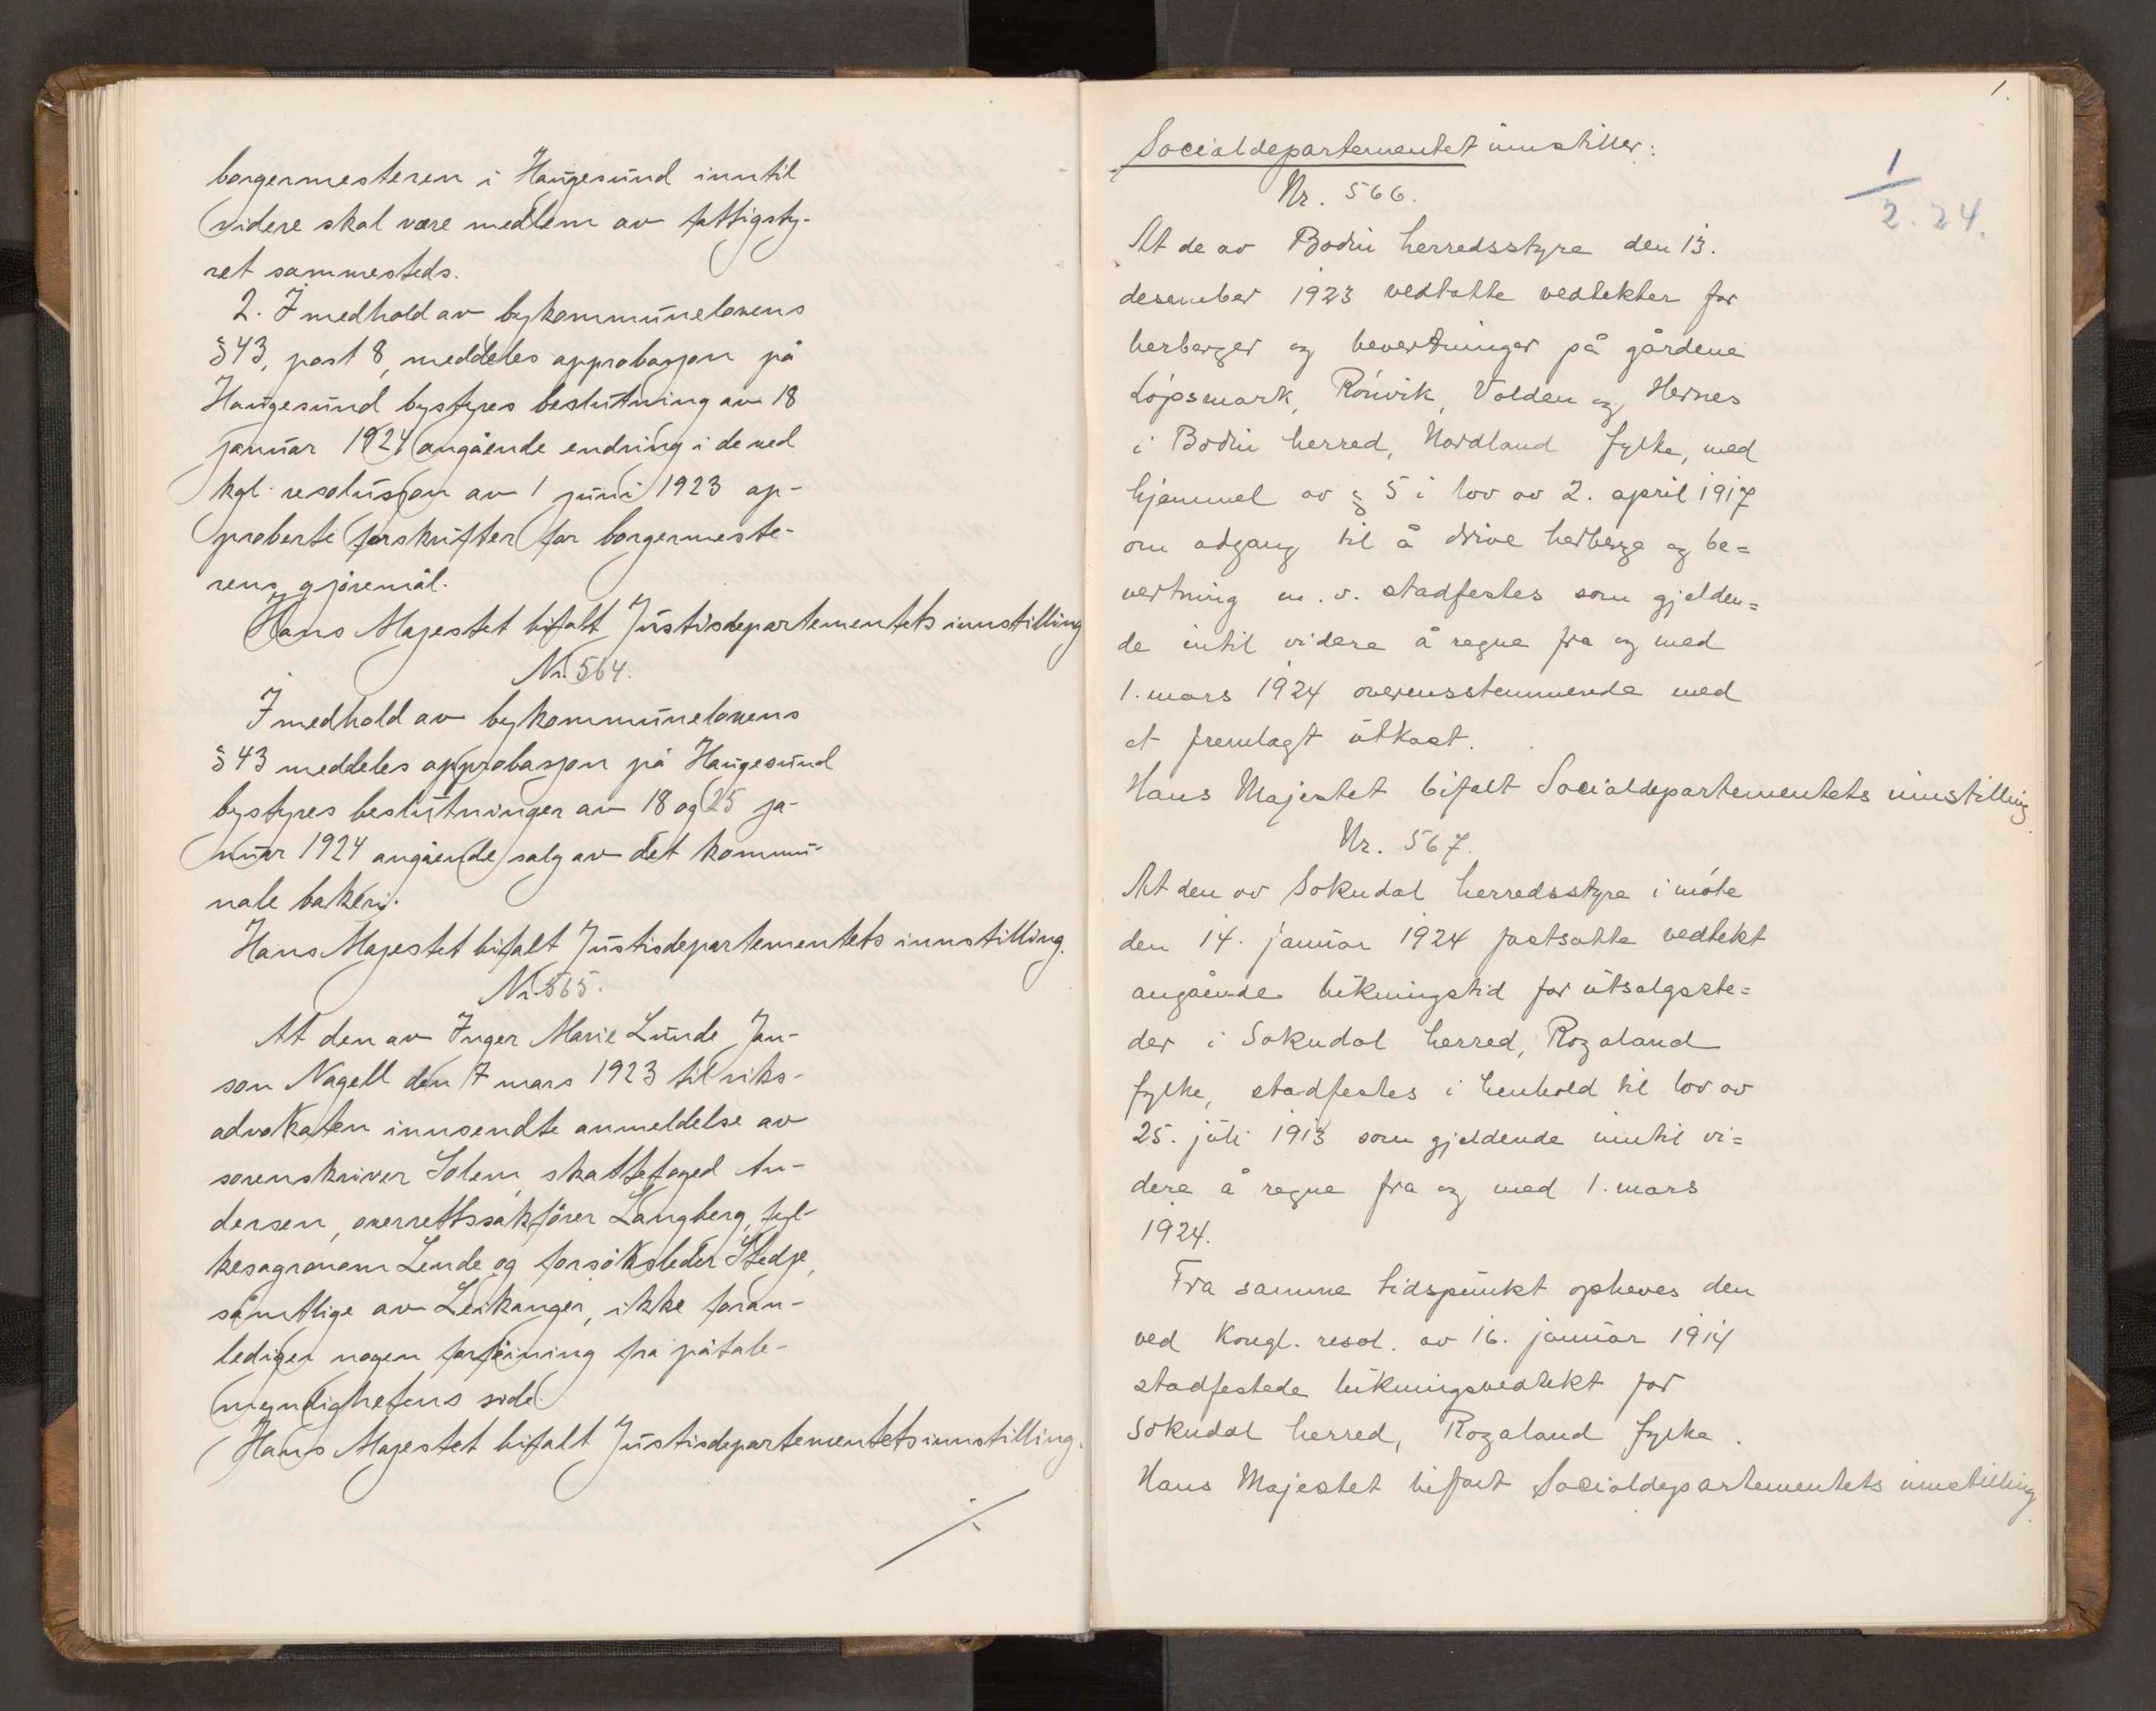 borgermesteren i Haugesund inntil
videre skal være medlem av fattigsty-
ret sammesteds.
2. I medhold av bykommunelovens
§ 43, post 8, meddeles approbasjon på
Haugesund bystyres beslutning av 18
januar 1924 angående endring i de ved
kgl. resolusjon av 1 juni 1923 ap-
proberte forskrifter for borgermeste-
rens gjøremål.
Hans Majestet bifalt Justisdepartementets innstilling
Nr. 564.
I medhold av bykommunelovens
§ 43 meddeles approbasjon på Haugesund
bystyres beslutninger av 18 og 25 ja-
nuar 1924 angående salg av det kommu-
nale bakeri.
Hans Majestet bifalt Justisdepartementets innstilling.
Nr. 565.
At den av Inger Marie Lunde Jan-
son Nagell den 7 mars 1923 til riks-
advokaten innsendte anmeldelse av
sorenskriver Solem, skattefoged An-
dersen, overrettssakfører Langberg, fyl-
kesagronom Lende og forsøksleder Stedje,
samtlige av Leikanger, ikke foran-
lediger nogen forføining fra påtale-
myndighetens side.
Hans Majestet bifalt Justisdepartementets innstilling.
1.
Socialdepartementet innstiller:
1/2.24.
Nr. 566.
At de av Bodin herredsstyre den 13.
desember 1923 vedtatte vedtekter for
herberger og bevertninger på gårdene
Løpsmark, Rønvik, Volden og Hernes
i Bodin herred, Nordland fylke, med
hjemmel av § 5 i lov av 2. april 1917
om adgang til å drive herberge og be=
vertning m.v. stadfestes som gjelden=
de intil videre å regne fra og med
1. mars 1924 overensstemmende med
et fremlagt utkast.
Hans Majestet bifalt Socialdepartementets innstilling
Nr. 567.
At den av Sokndal herredsstyre i møte
den 14. januar 1924 fastsatte vedtekt
angående lukningstid for utsalgsste=
der i Sokndal herred, Rogaland
fylke, stadfestes i henhold til lov av
25. juli 1913 som gjeldende inntil vi=
dere å regne fra og med 1. mars
1924.
Fra samme tidspunkt opheves den
ved Kongl. resol. av 16. januar 1914
stadfestede lukningsvedtekt for
Sokndal herred, Rogaland fylke.
Hans Majestet bifalt Socialdepartementets innstilling